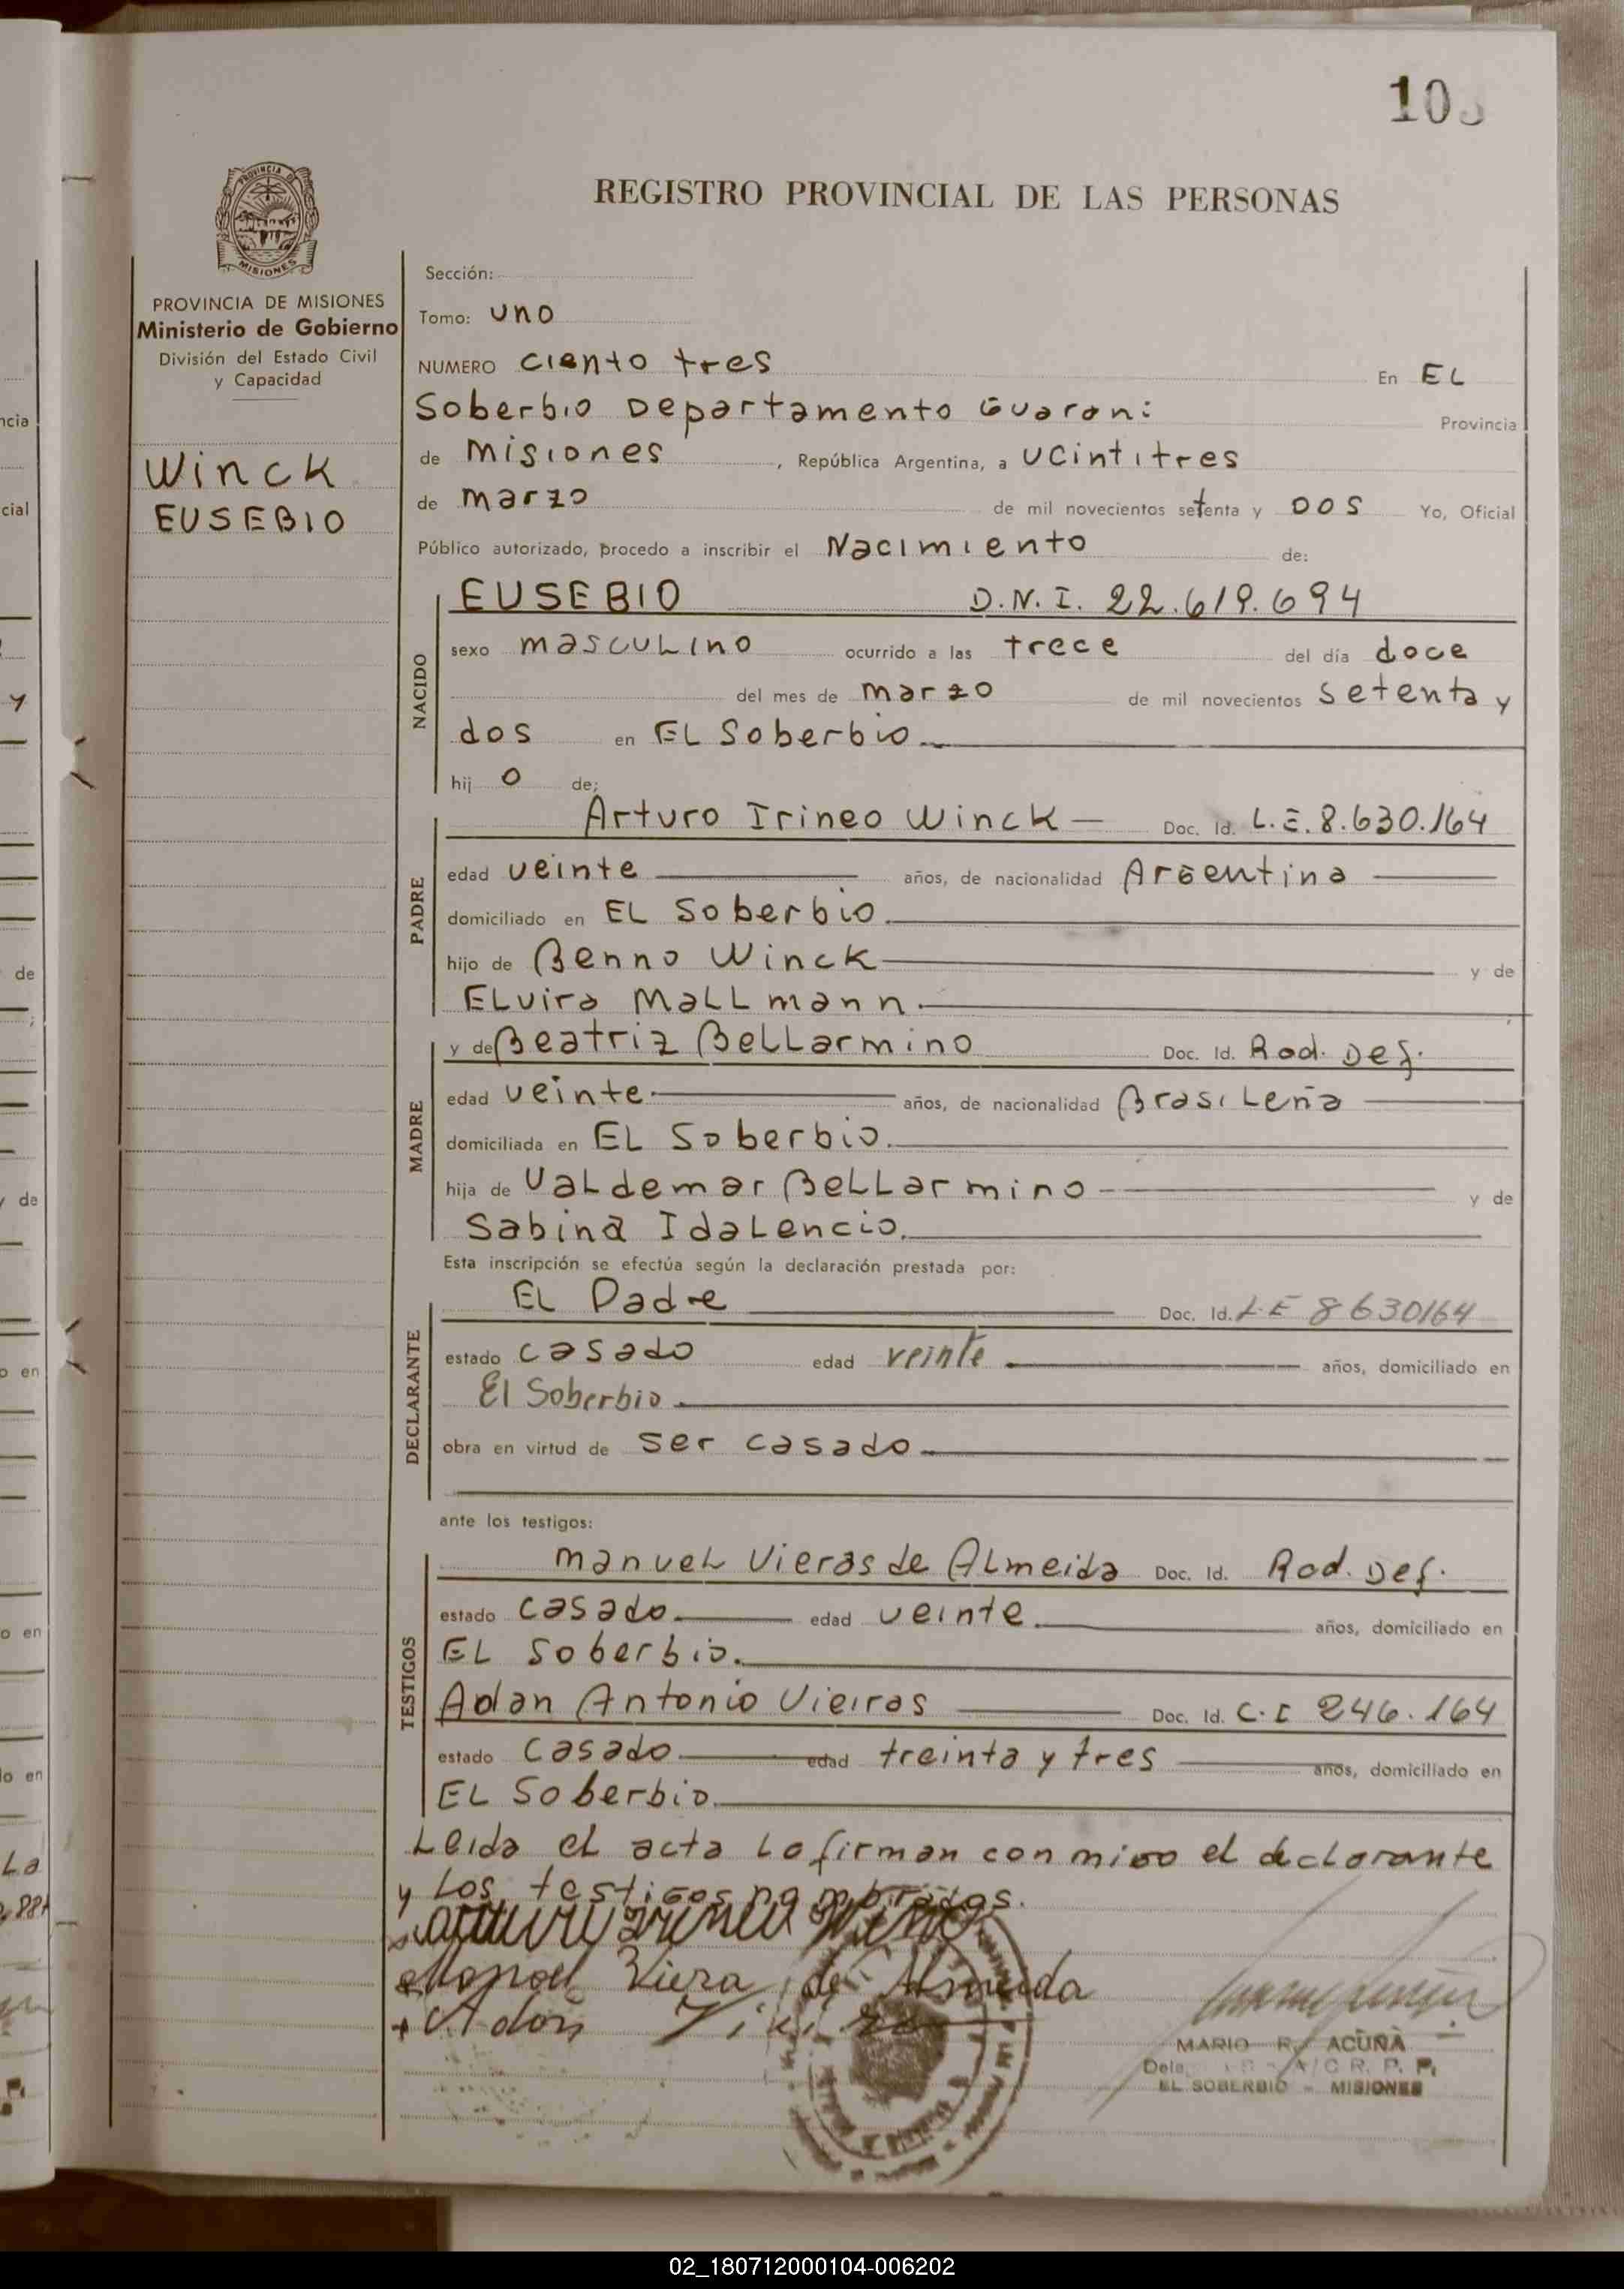 103
REGISTRO PROVINCIAL DE LAS PERSONAS
PROVINCIA DE MISIONES
PROVINCIA DE MISIONES
Ministerio de Gobierno
División del Estado Civil
y Capacidad
Winck
EUSEBIO
Sección:
Tomo: uno
NUMERO ciento tres En EL
Soberbio Departamento Guarani Provincia
de Misiones, República Argentina, a veintitres
de marzo de mil novecientos setenta y DOS Yo, Oficial
Público autorizado, procedo a inscribir el Nacimiento de:
NACIDO
EUSEBIO D.N.I. 22.619.694
sexo masculino ocurrido a las trece del día doce
del mes de marzo de mil novecientos setenta y
dos en EL Soberbio
hij o de;
PADRE
Arturo Irineo Winck Doc. Id. L.E. 8.630.164
edad veinte años, de nacionalidad Argentina
domiciliado en EL Soberbio.
hijo de Benno Winck y de
Elvira Mallmann.
MADRE
y de Beatriz Bellarmino Doc. Id. Rad. Def.
edad veinte años, de nacionalidad Brasileña
domiciliada en EL Soberbio.
hija de Valdemar Bellarmino y de
Sabina Idalencio.
Esta inscripción se efectúa según la declaración prestada por:
DECLARANTE
EL Padre Doc. Id. L.E 8630164
estado casado edad veinte años, domiciliado en
El Soberbio
obra en virtud de ser casado
ante los testigos:
TESTIGOS
Manuel Vieras de Almeida Doc. Id. Rod. Def.
estado casado edad veinte años, domiciliado en
EL Soberbio.
Adan Antonio Vieiras Doc. Id. C.I 246.164
estado casado edad treinta y tres años, domiciliado en
EL Soberbio.
Leida el acta la firman con migo el declarante
y los testigos nombrados.
Manoel Viera de Almeida
Adão Vieira
MARIO R. ACUÑA
A/C R. P. P.
EL SOBERBIO - MISIONES
02_180712000104-006202